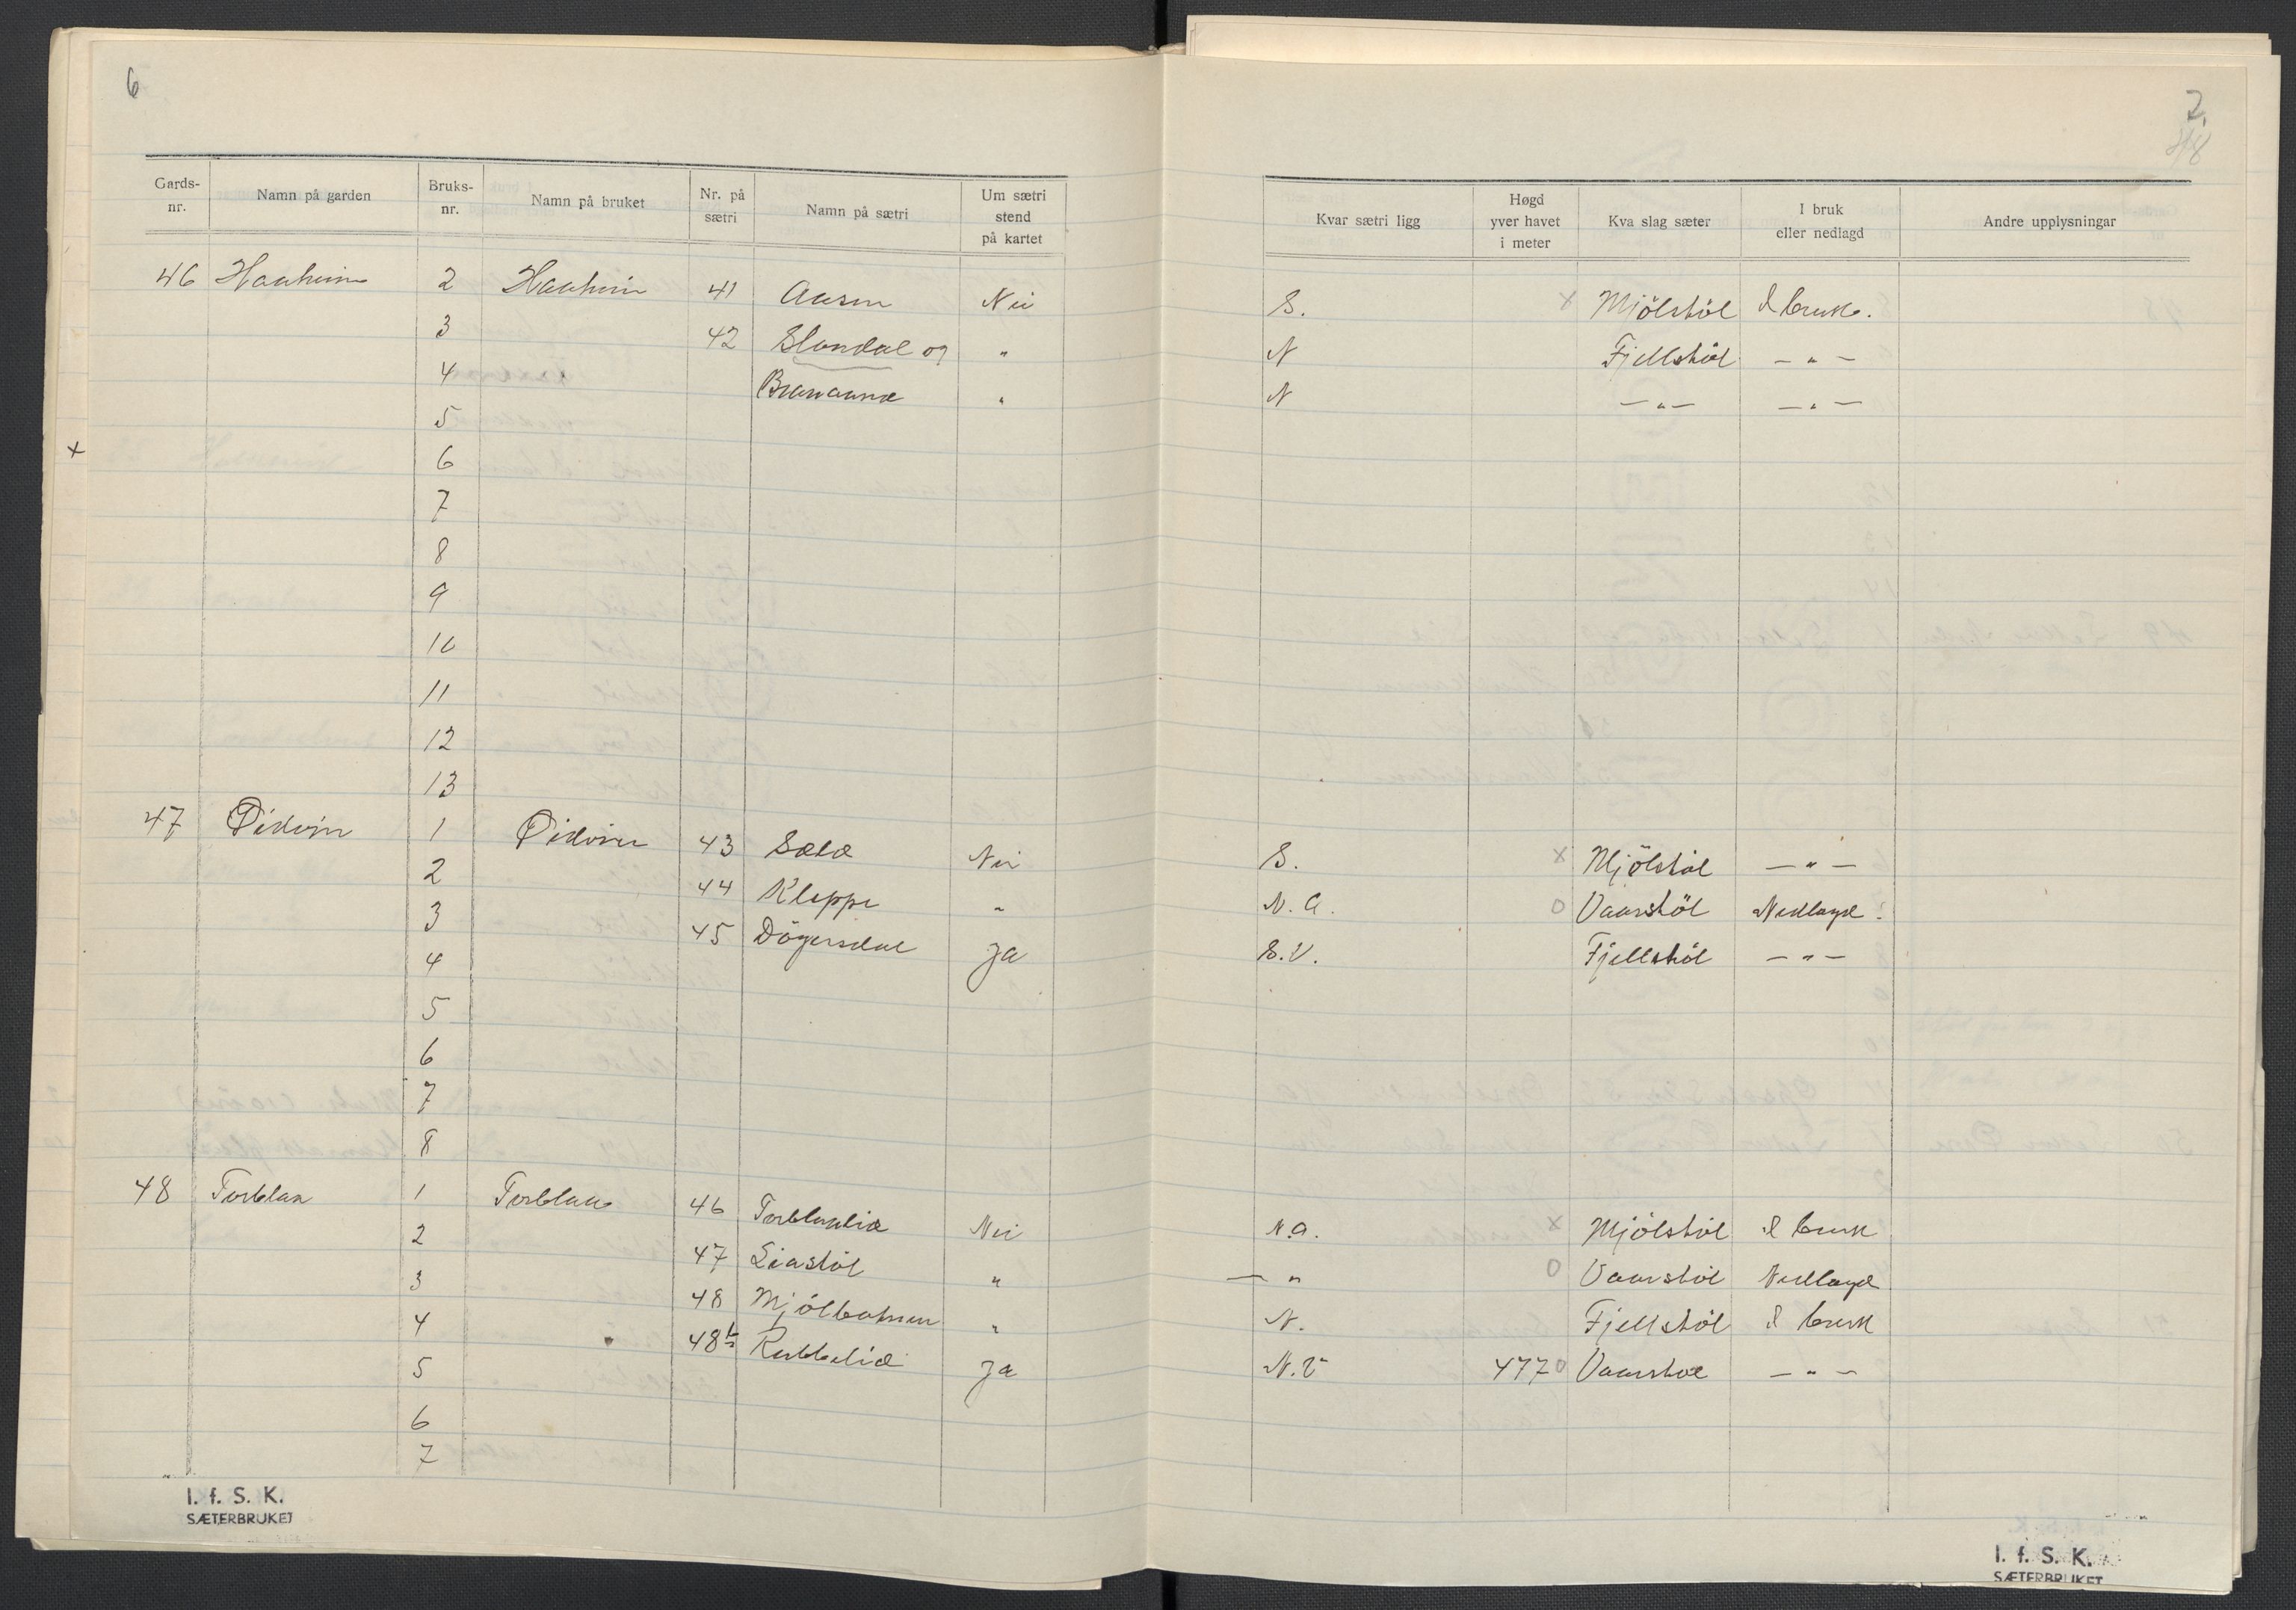 6
2.
Gards-nr. | Namn på garden | Bruks-nr. | Namn på bruket | Nr. på sætri | Namn på sætri | Um sætri stend på kartet | Kvar sætri ligg | Høgd yver havet i meter | Kva slag sæter | I bruk eller nedlagd | Andre upplysningar
46 Haaheim 2 Haaheim 41 Aasen Nei S. x Mjölstöl I bruk.
3 42 Slondal og " N Fjellstöl — " —
4 " N — " — — " —
5
6
7
8
9
10
11
12
13
47 1 43 Sæld Nei S. x Mjölstöl — " —
2 44 Kleppe " N. A. O Vaarstöl Nedlagd.
3 45 Dögersdal Ja S.V. Fjellstöl — " —
4
5
6
7
8
48 Torblaa 1 Torblaa 46 Torblaalid Nei N.A. x Mjölstöl I bruk
2 47 Liastöl " — " O Vaarstöl Nedlagd
3 48 Mjölbotnen " N. Fjellstöl I bruk
4 48b Rubbelid Ja N.V 477 O Vaarstöl — " —
5
6
7
x
I. f. S. K.
SÆTERBRUKET
I. f. S. K.
SÆTERBRUKET